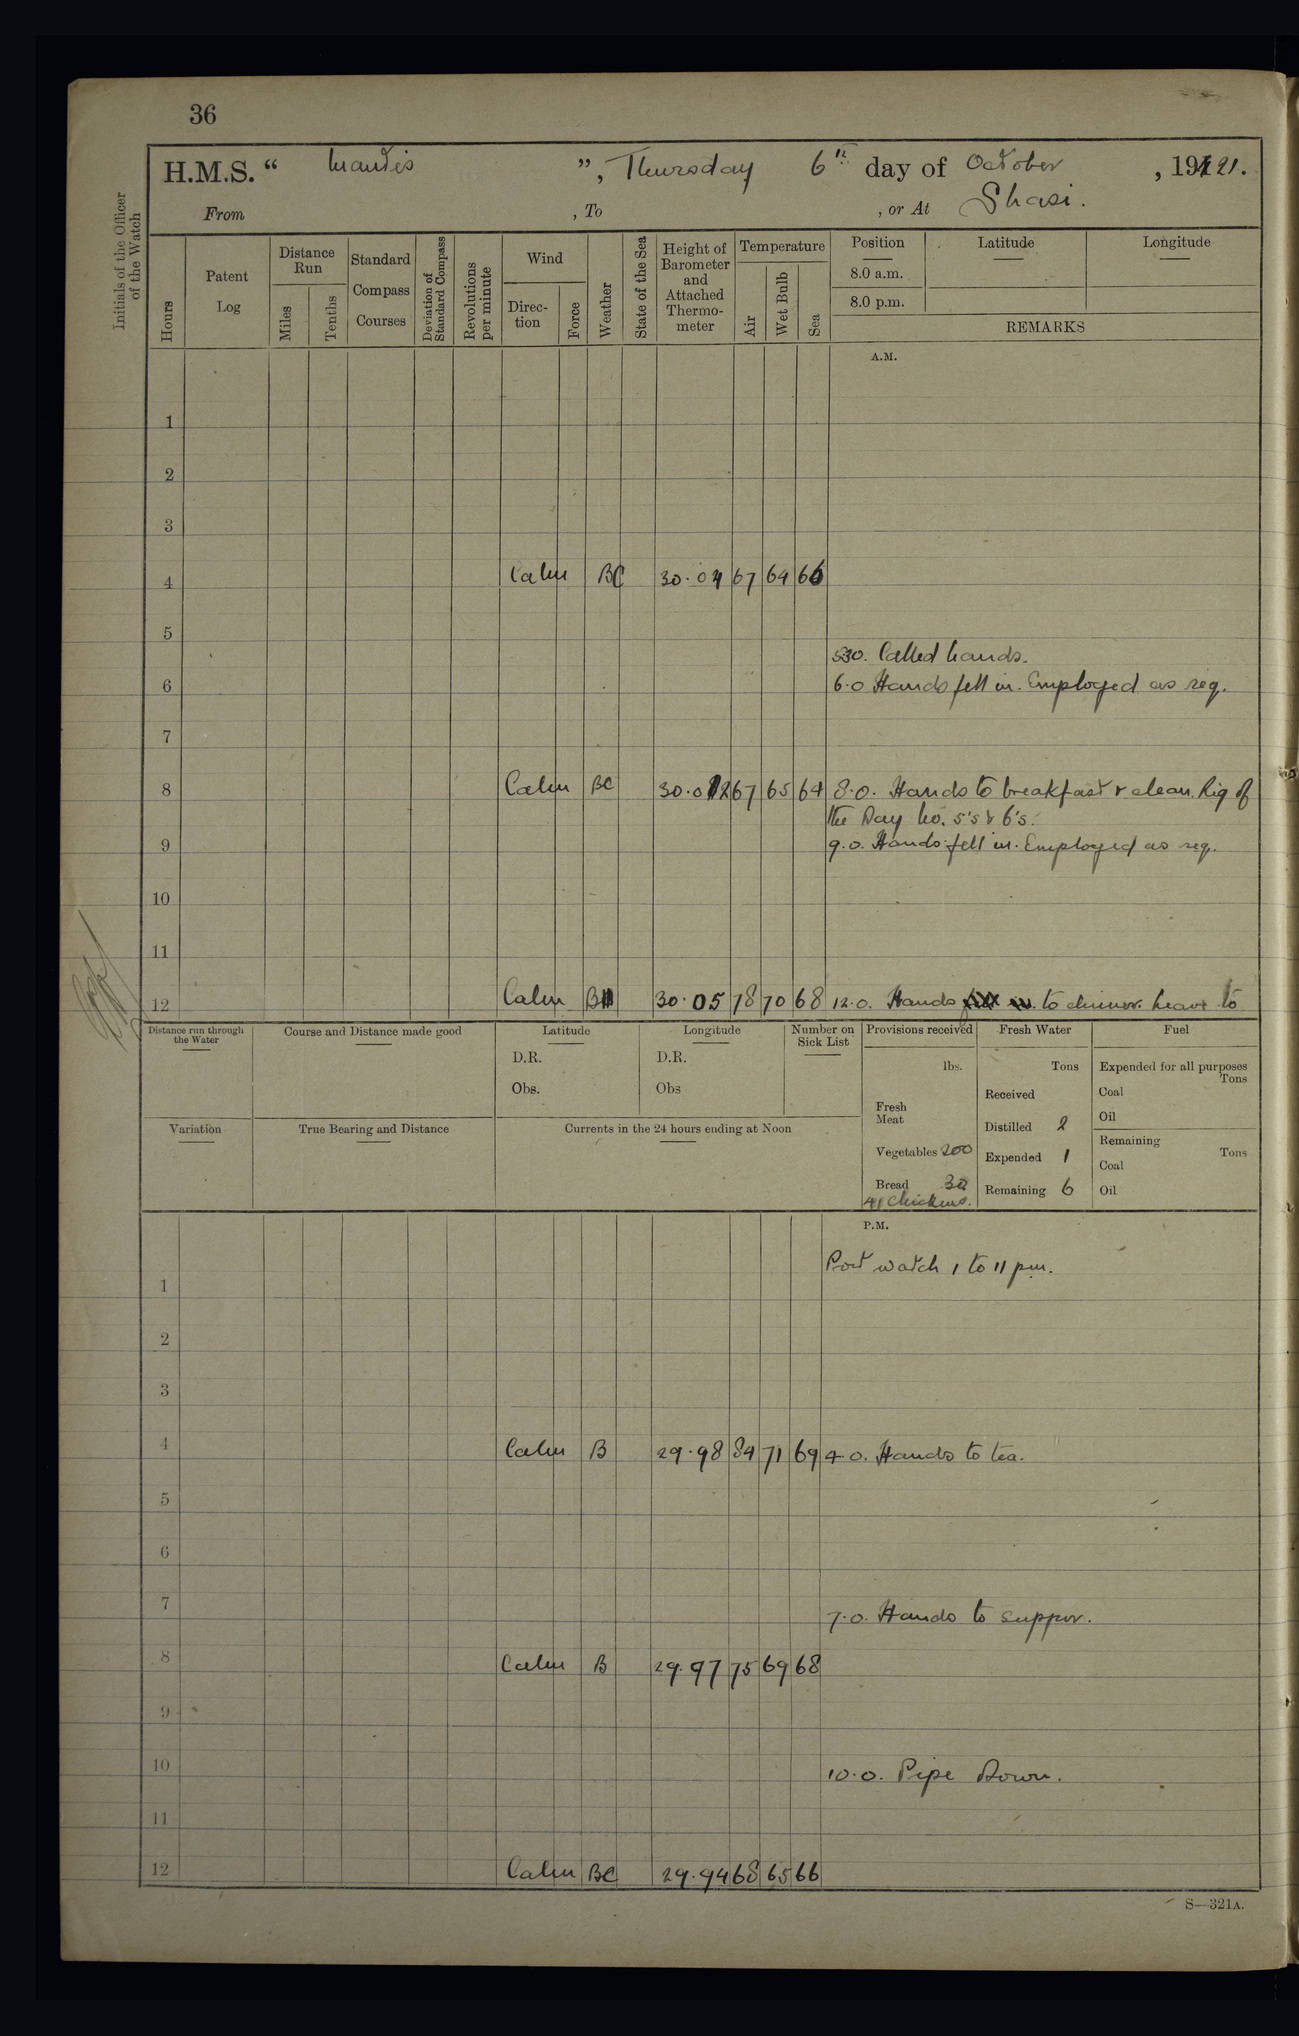 36
H.M.S. “ Mantis ”, Thursday 6th day of October, 1921.
From , To , or At Shasi.
Initials of the Officer of the Watch
Hours
Patent Log
Distance Run
Miles
Tenths
Standard Compass Courses
Deviation of Standard Compass
Revolutions per minute
Wind
Direction
Force
Weather
State of the Sea
Height of Barometer and Attached Thermometer
Temperature
Air
Wet Bulb
Sea
Position
8.0 a.m.
8.0 p.m.
Latitude
Longitude
REMARKS
A.M.
1
2
3
4 Calm BC 30.04 67 64 66
5
5.30. Called hands.
6 6.0 Hands fell in. Employed as req.
7
8 Calm BC 30.02 67 65 64 8.0. Hands to breakfast & clean. Rig of
the Day No. 5's & 6's.
9 9.0. Hands fell in. Employed as req.
10
11
12 Calm B 30.05 78 70 68 12.0. Hands to dinner. Leave to
Distance run through the Water
Course and Distance made good
Latitude
D.R.
Obs.
Longitude
D.R.
Obs
Number on Sick List
Provisions received
lbs.
Fresh Meat
Vegetables 200
Bread 30
41 Chickens.
Fresh Water
Tons
Received
Distilled 2
Expended 1
Remaining 6
Fuel
Expended for all purposes
Tons
Coal
Oil
Remaining
Tons
Coal
Oil
Variation
True Bearing and Distance
Currents in the 24 hours ending at Noon
P.M.
Port watch 1 to 11 pm.
1
2
3
4 Calm B 29.98 84 71 69 4.0. Hands to tea.
5
6
7 7.0. Hands to supper.
8 Calm B 29.97 75 69 68
9
10 10.0. Pipe Down.
11
12 Calm BC 29.94 68 65 66
S—321A.